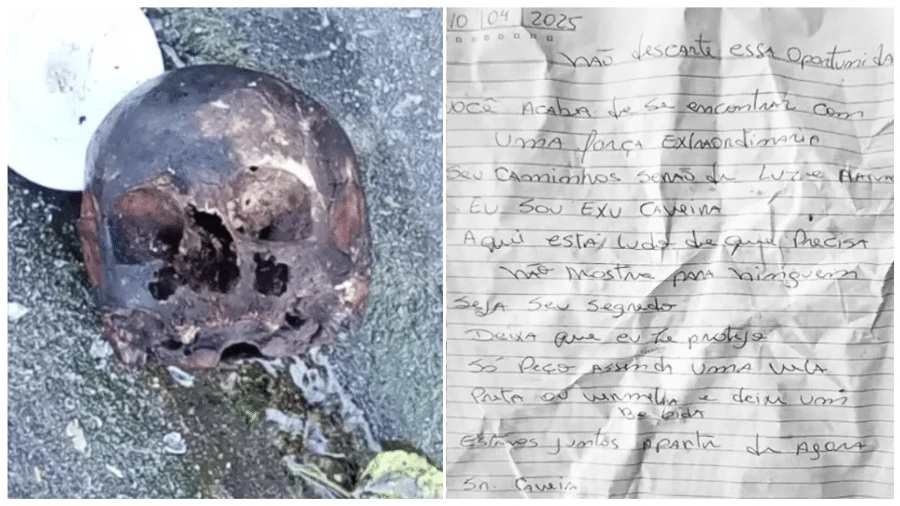 10 | 04 | 2025
Não descarte essa oportunida
Você acaba de se encontrar com
uma força extraordinaria
Seu caminhos serão de luz e
Eu sou Exu Caveira
Aqui está tudo de que precisa
não mostre para ninguem
Seja seu segredo
Deixa que eu te proteja
Só peço assenda uma vela
Preta ou vermelha e deixe um
Bebida
Estaves juntos aparti de agora
Sr. Caveira